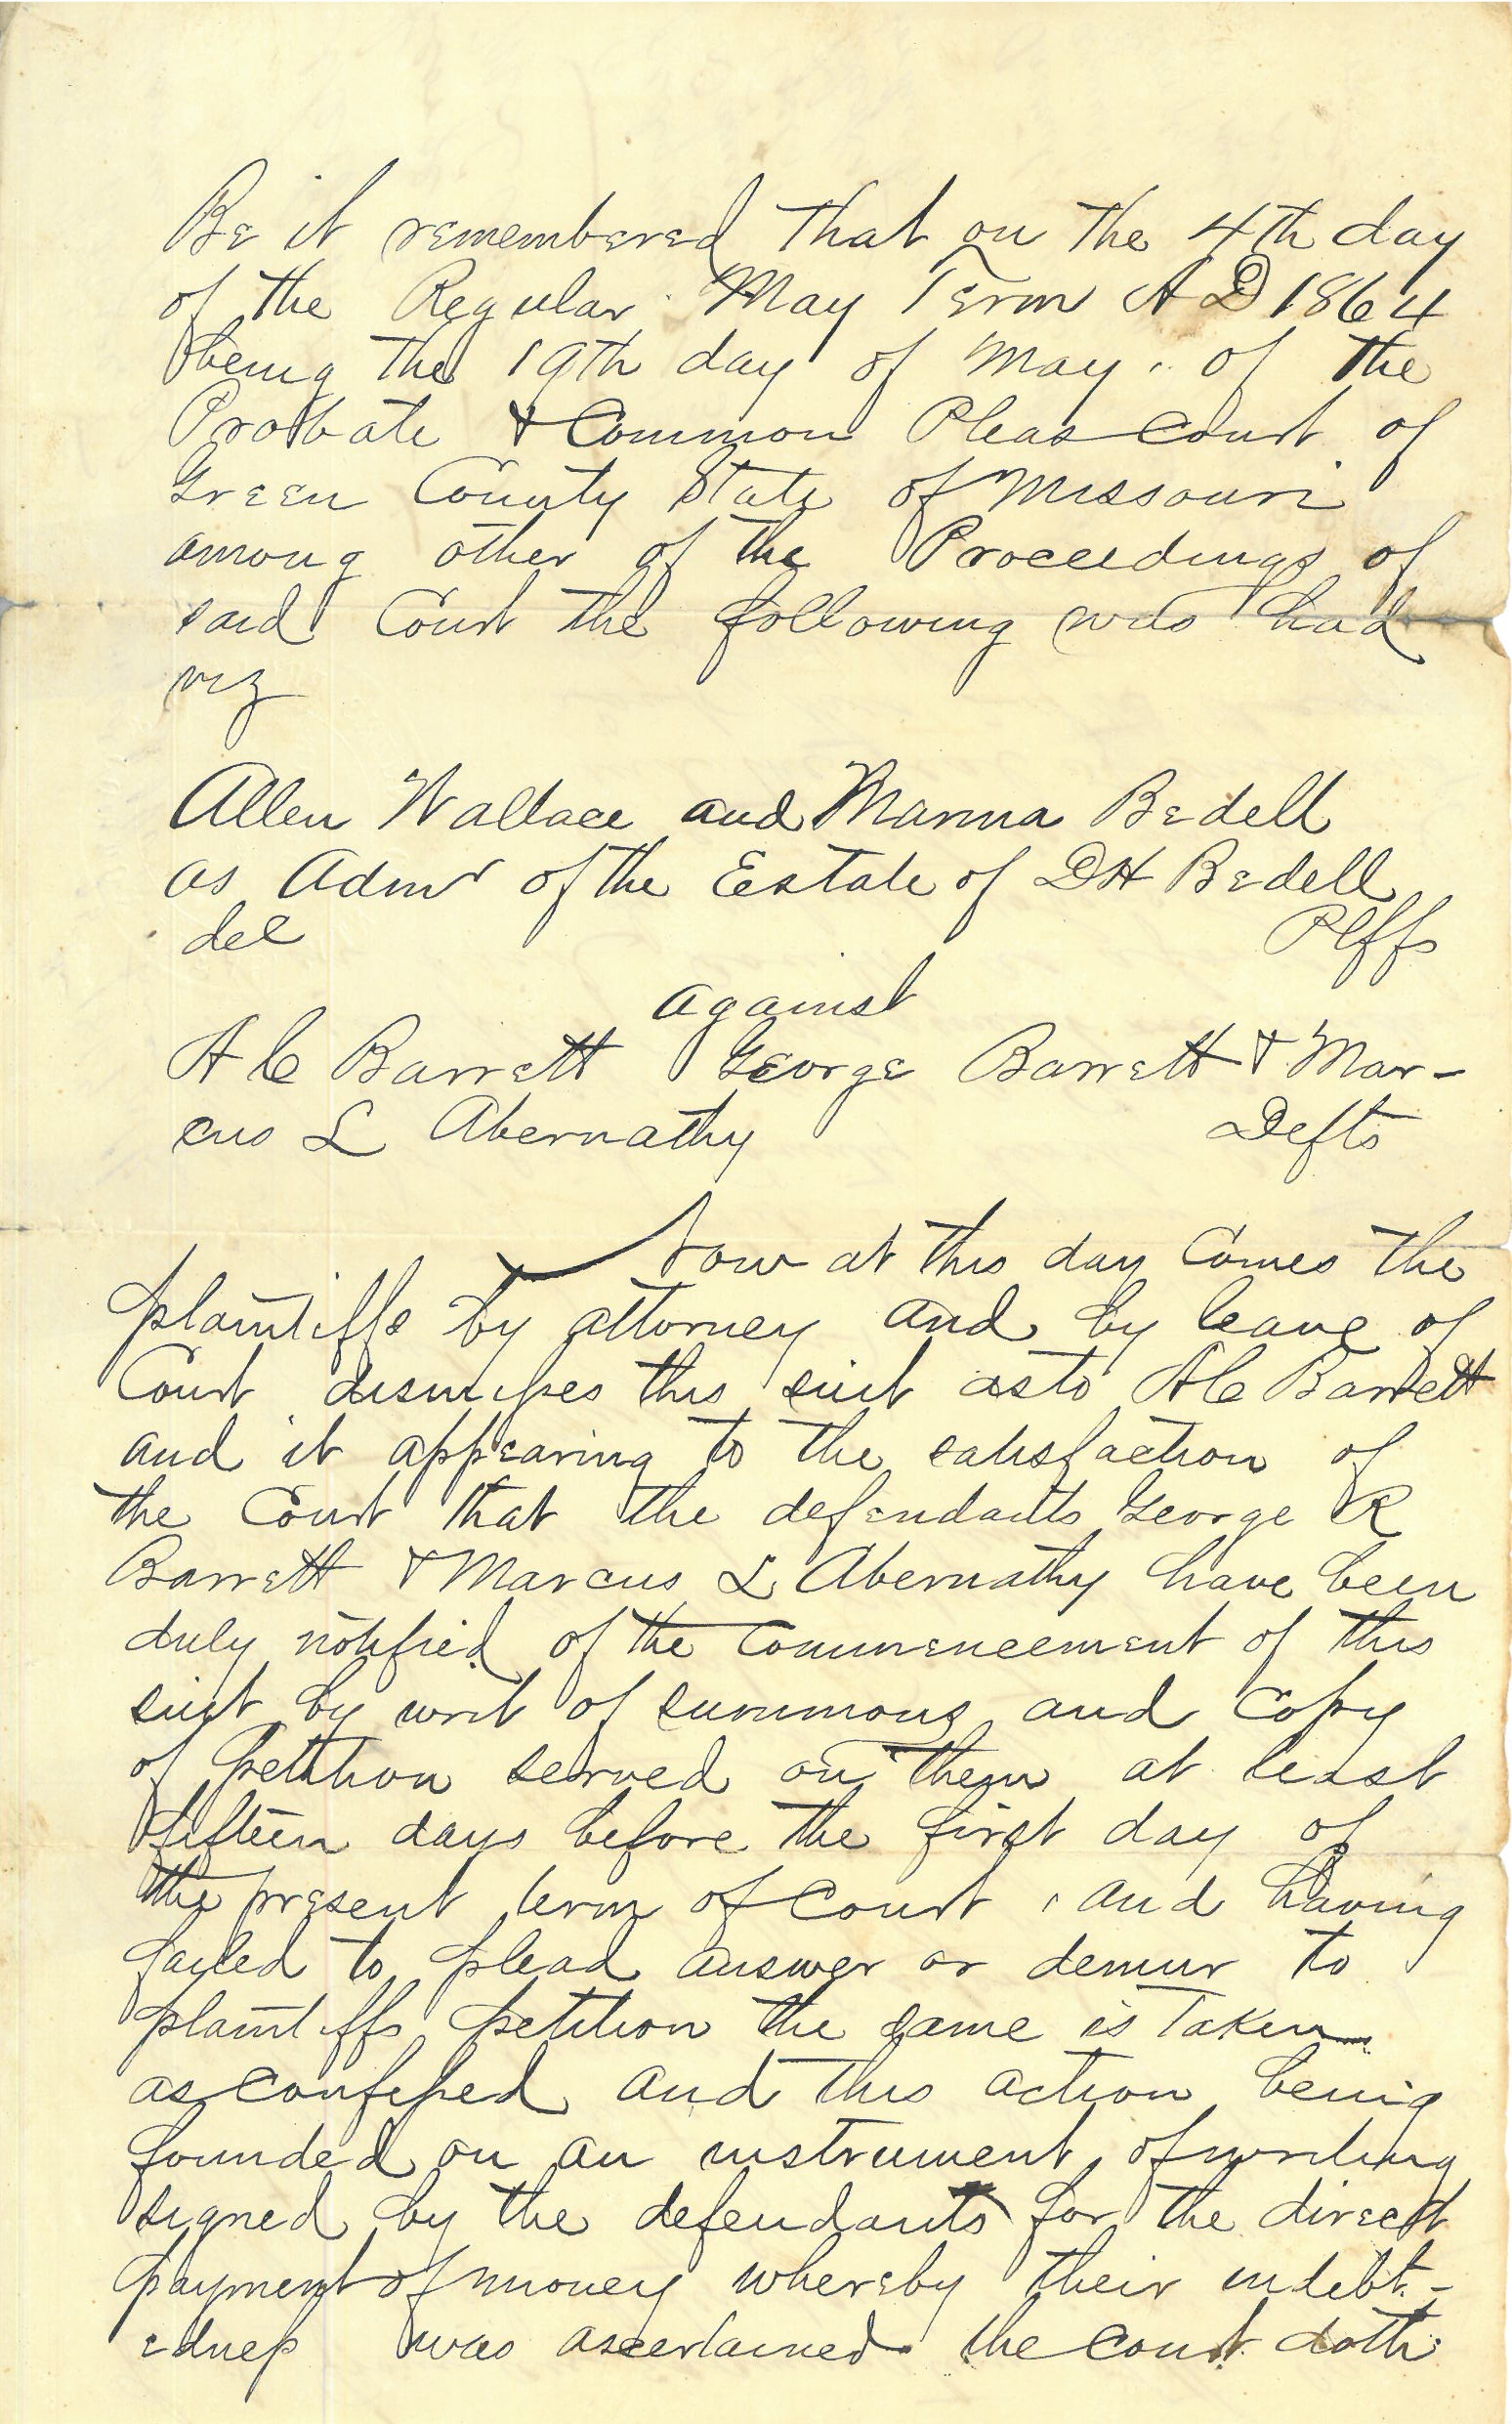 Be it remembered that on the 4th day
of the Regular May Term A D 1864
being the 19th day of May. of the
Probate & Common Pleas Court of
Green County State of Missouri
among other of the Proceedings of
said Court the following was had
viz
Allen Wallace and Manna Bedell
as Admr of the Estate of D H Bedell
dec
Plffs
against
A C Barrett George Barrett & Mar-
cus L Abernathy
Defts
Now at this day Comes the
plaintiffs by attorney and by leave of
Court dismisses this suit as to A C Barrett
and it appearing to the satisfaction of
the Court that the defendants George R
Barrett & Marcus L Abernathy have been
duly notified of the Commencement of this
suit by writ of summons and Copy
of petition served on them at least
fifteen days before the first day of
the present term of Court, and having
failed to plead answer or demur to
plaintiffs petition the same is Taken
as confessed and this action being
founded on an instrument of writing
signed by the defendants for the direct
payment of money whereby their indebt-
edness was ascertained the Court doth